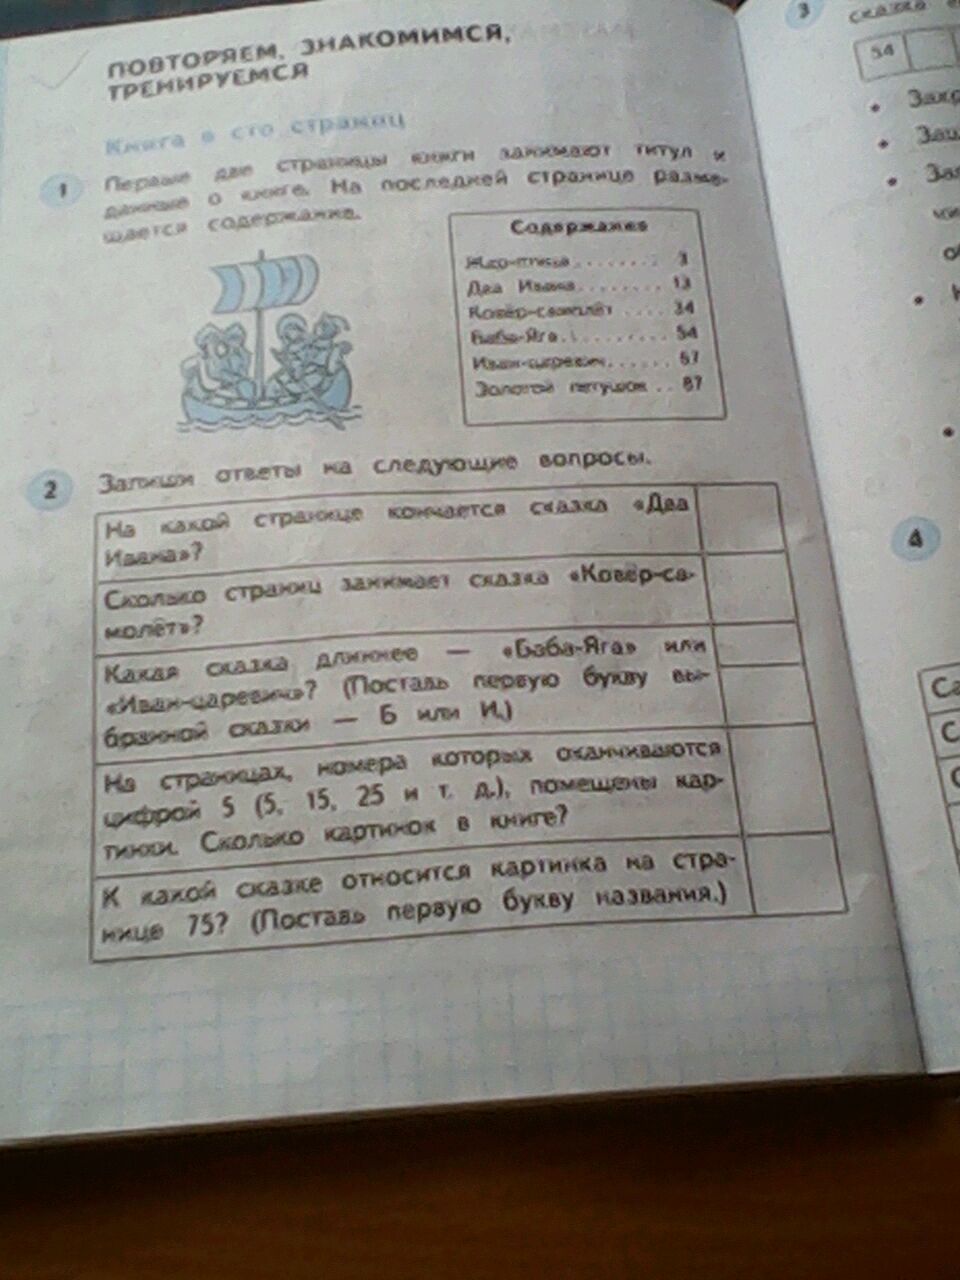 ПОВТОРЯЕМ, ЗНАКОМИМСЯ,
ТРЕНИРУЕМСЯ
Книга в сто страниц
1 Первые две страницы книги занимают титул и
данные о книге. На последней странице разме-
щается содержание.
Содержание
Жар-птица ........ 3
Два Ивана ........ 13
Ковёр-самолёт .... 34
Баба-Яга ......... 54
Иван-царевич ...... 67
Золотой петушок .. 87
2 Запиши ответы на следующие вопросы.
На какой странице кончается сказка «Два
Ивана»?
Сколько страниц занимает сказка «Ковёр-са-
молёт»?
Какая сказка длиннее — «Баба-Яга» или
«Иван-царевич»? (Поставь первую букву вы-
бранной сказки — Б или И.)
На страницах, номера которых оканчиваются
цифрой 5 (5, 15, 25 и т. д.), помещены кар-
тинки. Сколько картинок в книге?
К какой сказке относится картинка на стра-
нице 75? (Поставь первую букву названия.)
3
сказка
54
4